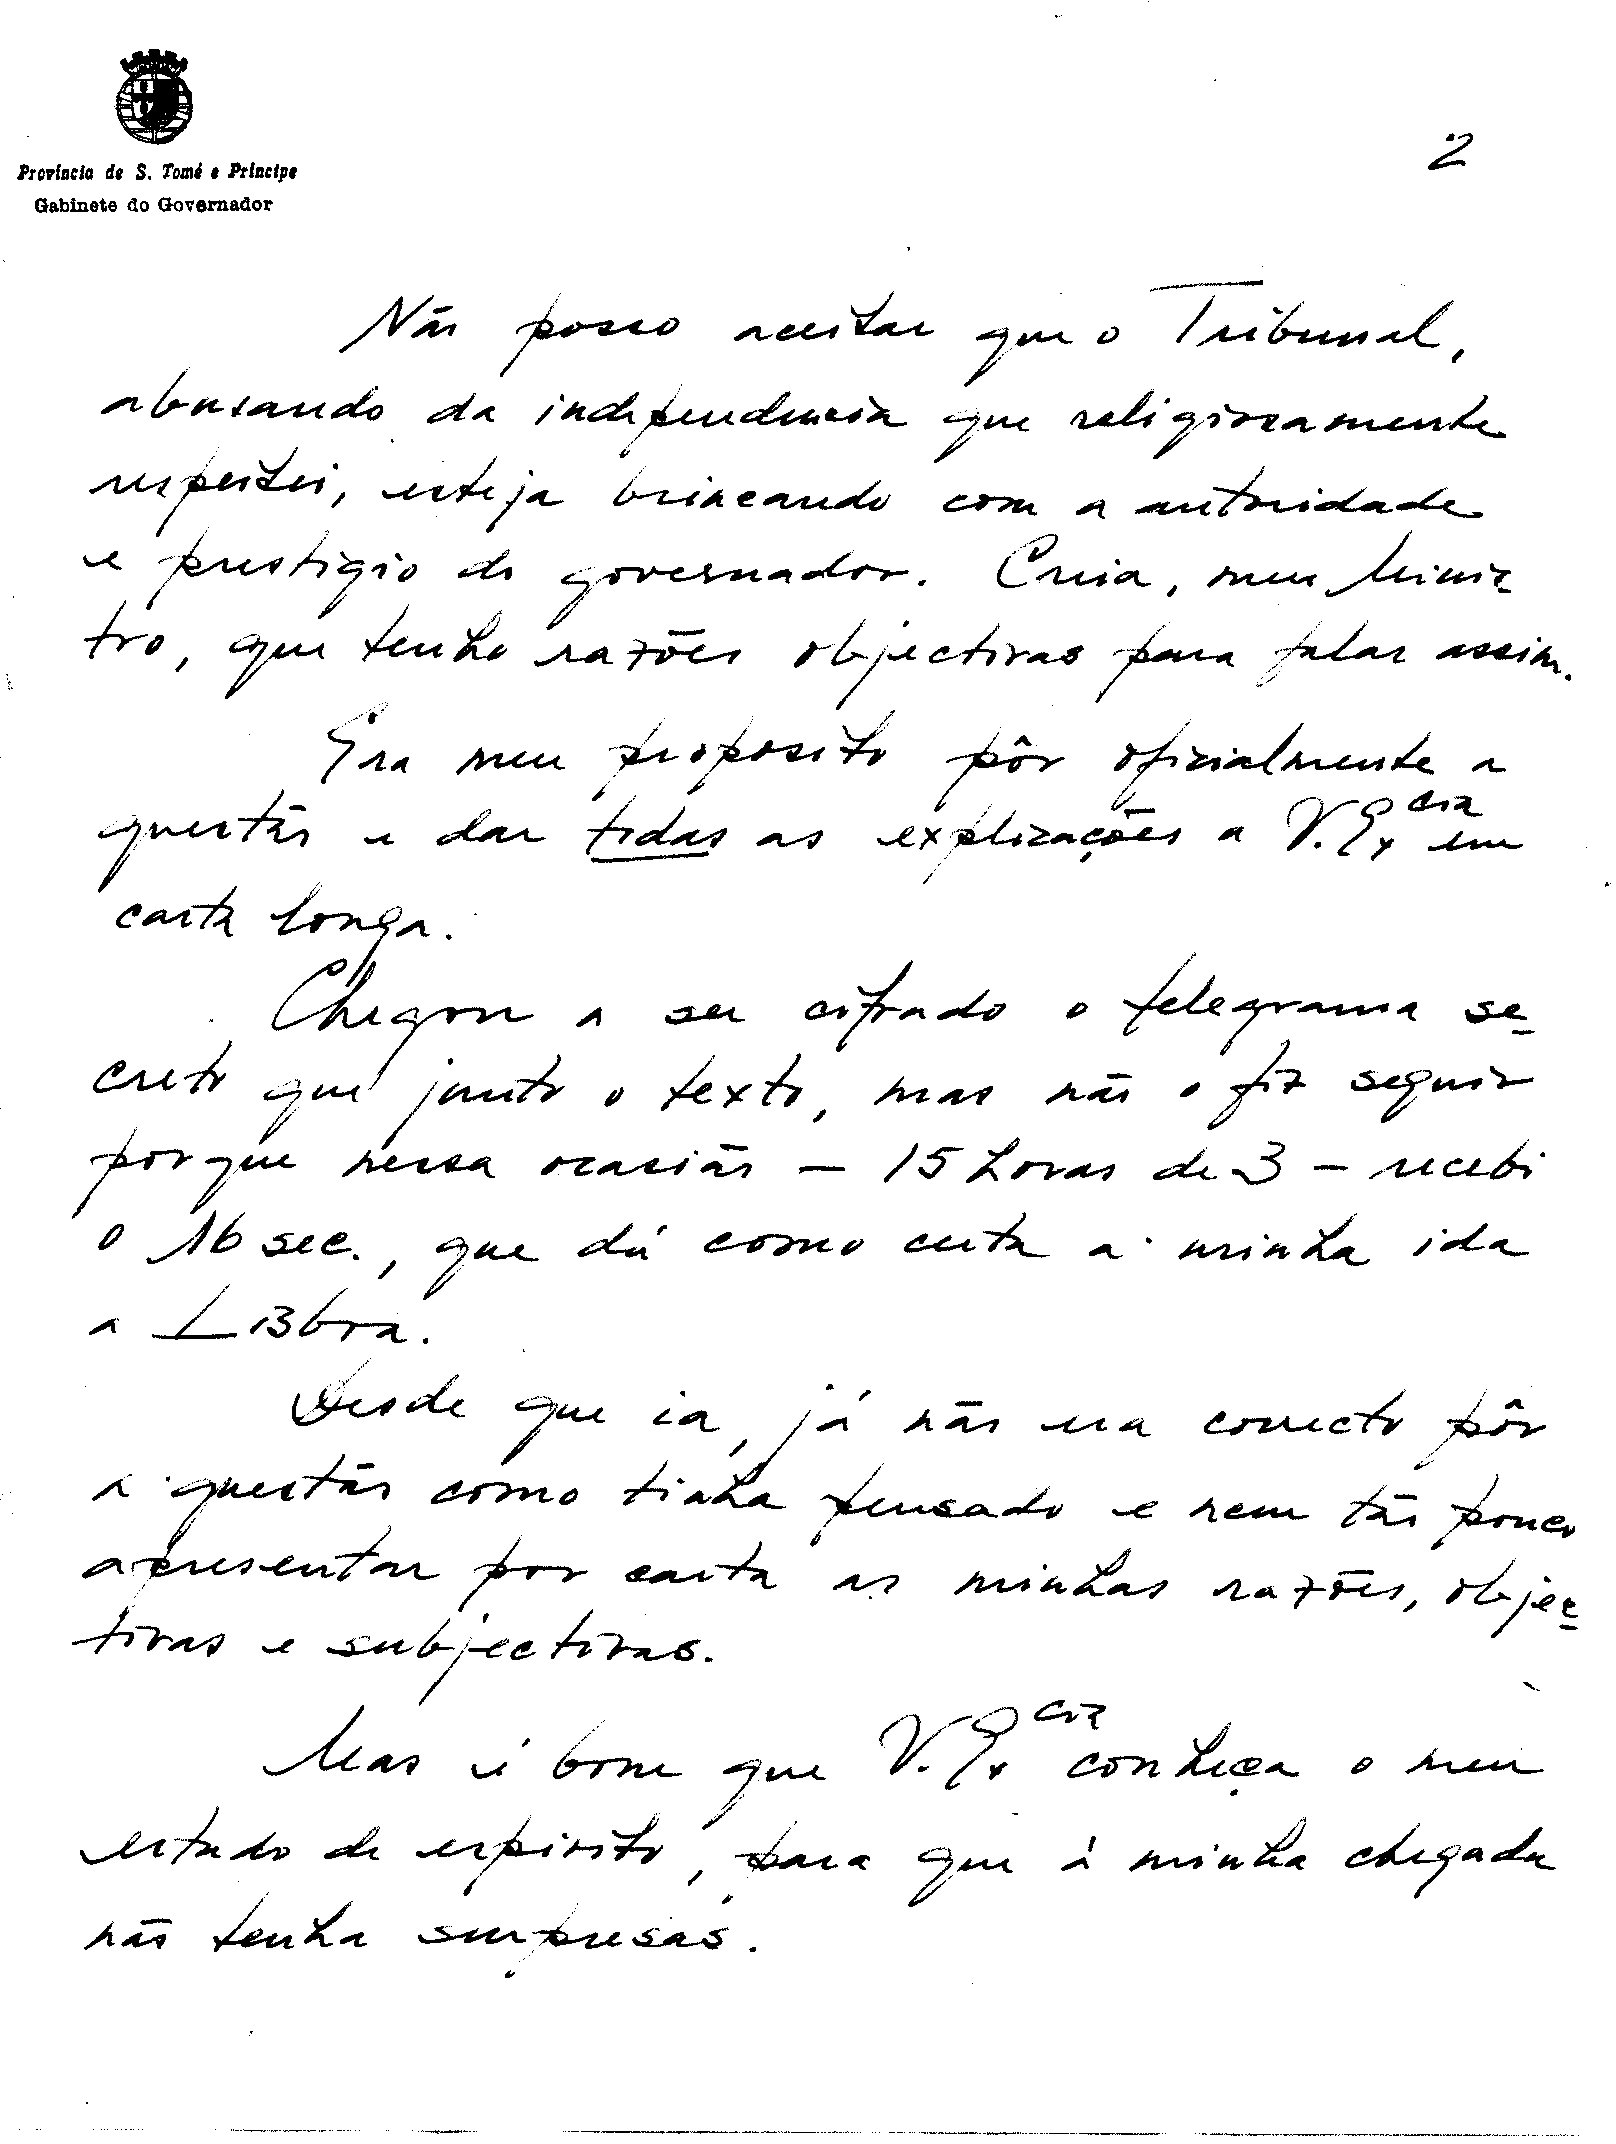 Província de S. Tomé e Príncipe
Gabinete do Governador
2
Não posso aceitar que o Tribunal,
abusando da independencia que religiosamente
respeitei, esteja brincando com a autoridade
e prestigio do governador. Creia, meu Minis-
tro, que tenho razões objectivas para falar assim.
Era meu proposito pôr oficialmente a
questão e dar todas as explicações a V. Ex.cia em
carta longa.
Chegou a ser cifrado o telegrama se-
creto que junto o texto, mas não o fiz seguir
porque nessa ocasião — 15 horas de 3 — recebi
o 16 sec., que dá como certa a minha ida
a Lisboa.
Desde que ia, já não era correcto pôr
a questão como tinha pensado e nem tão pouco
apresentar por carta as minhas razões, objec-
tivas e subjectivas.
Mas é bom que V. Ex.cia conheça o meu
estado de espirito, para que á minha chegada
não tenha surpresas.